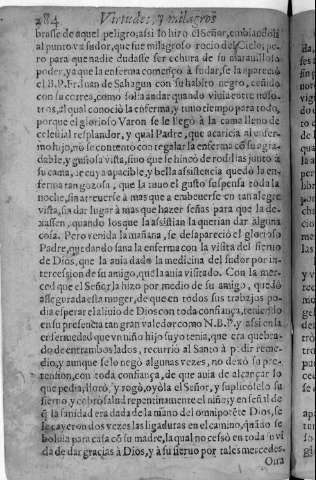 284 Virtudes, y milagros
brasse de aquel peligro; assi lo hizo el Señor, embiandole
al punto vn sudor, que fue milagroso rocio del Cielo; pe-
ro para que nadie dudasse ser echura de su marauilloso
poder, ya que la enferma començò à sudar, se la apareciò
el B.P.Fr.Iuan de Sahagun con su habito negro, ceñido
con su correa, como solia andar quando viuia entre noso-
tros, al qual conociò la enferma, y tuuo tiempo para todo,
porque el glorioso Varon se le llegò à la cama lleno de
celestial resplandor, y qual Padre, que acaricia al enfer-
mo hijo, no se contentò con regalar la enferma cõ su agra-
dable, y gustosa vista, sino que se hincò de rodillas junto à
su cama, cuya apacible, y bella assistencia quedò la en-
ferma tan gozosa, que la tuuo el gusto suspensa toda la
noche, sin atreuerse à mas que à embeuerse en tan alegre
vista, sin dar lugar à mas que hazer señas para que la de-
xassen, quando los que la assistian la querian dar alguna
cosa. Pero venida la mañana, se desapareciò el glorioso
Padre, quedando sana la enferma con la visita del sieruo
de Dios, que la auia dado la medicina del sudor por in-
tercession de su amigo, que la auia visitado. Con la mer-
ced que el Señor la hizo por medio de su amigo, quedò
assegurada esta muger, de que en todos sus trabajos po-
dia esperar el aliuio de Dios con toda confiança, teniendo
en su presencia tan gran valedor como N.B.P. y assi en la
enfermedad que vn niño hijo suyo tenia, que era quebra-
do de entrambos lados, recurriò al Santo à pedir reme-
dio, y aunque se lo negò algunas vezes, no dexò su pre-
tension, con toda confiança, de que auia de alcançar lo
que pedia, llorò, y rogò, oyòla el Señor, y suplicòselo su
sieruo, y cobrò salud repentinamente el niño; y en señal de
q̃ la sanidad era dada de la mano del omnipotẽte Dios, se
le cayeron dos vezes las ligaduras en el camino, quãdo se
boluia para casa cõ su madre, la qual no cessò en toda su vi
da de dar gracias à Dios, y à su sieruo por tales mercedes.
Otra